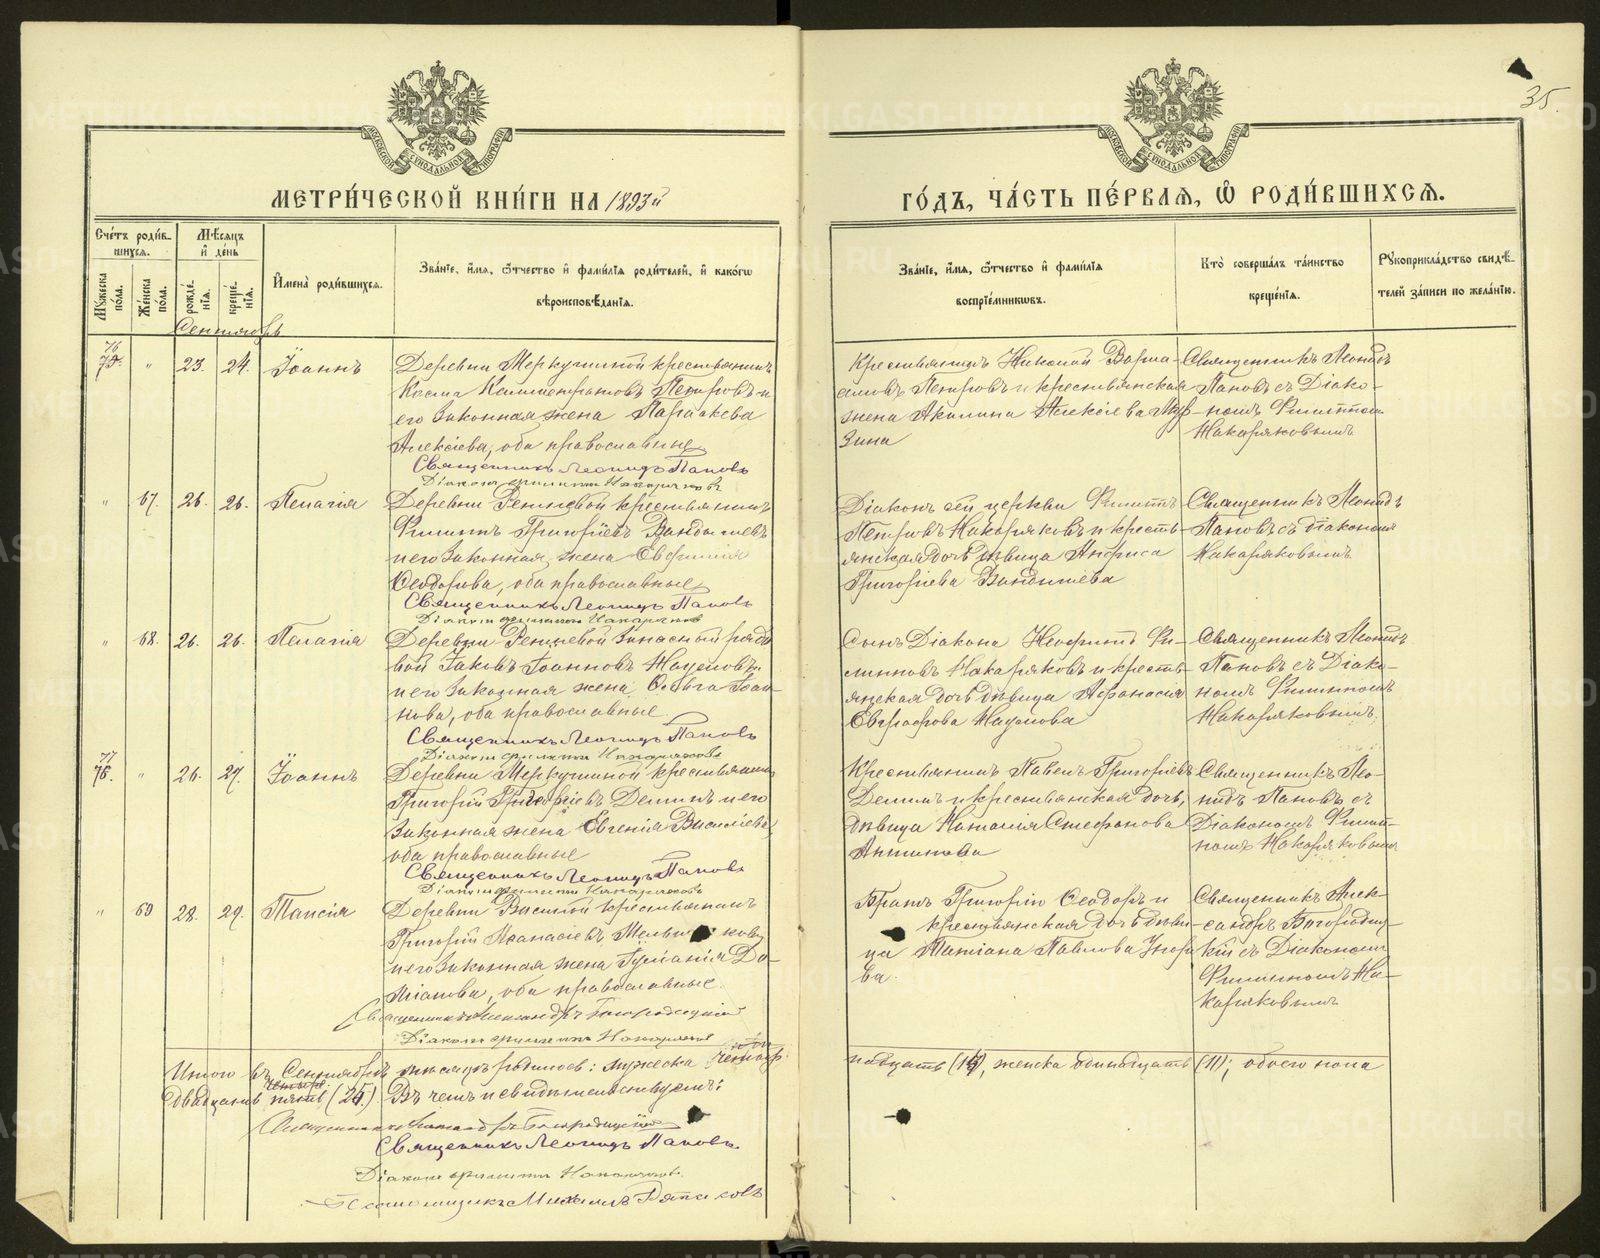 35.
МОСКОВСКОЙ СѴНОДАЛЬНОЙ ТИПОГРАФІИ
МОСКОВСКОЙ СѴНОДАЛЬНОЙ ТИПОГРАФІИ
МЕТРИ́ЧЕСКОЙ КНИ́ГИ НА 1893й
ГО́ДЪ, ЧА́СТЬ ПЕ́РВАѦ, Ѡ РОДИ́ВШИХСѦ.
Сче́тъ роди́в-
шихсѧ.
Мꙋ́жеска по́ла.
Же́нска по́ла.
Мѣ́сѧцъ
и де́нь
рожде́нїѧ.
креще́нїѧ.
И҆мена̀ роди́вшихсѧ.
Зва́нїе, и҆́мѧ, ѻ҆́тчество и҆ фами́лїѧ роди́телей, и҆ како́гѡ
вѣроисповѣ́данїѧ.
Зва́нїе, и҆́мѧ, ѻ҆́тчество и҆ фами́лїѧ
воспрїе́мникѡвъ.
Кто̀ соверша́лъ та́инство
креще́нїѧ.
Рꙋкоприкла́дство свидѣ́-
телей за́писи по жела́нїю.
Сентябрь
76
75. " 23. 24. Іоаннъ
Деревни Меркушиной крестьянинъ
Косма Петровъ и
его законная жена Параскева
Алексіева, оба православные
Священникъ Леонидъ Поповъ
Діаконъ Филиппъ Накаряковъ
Крестьянинъ Николай Варла-
амовъ Петровъ и крестьянская
жена Акилина Алексіева
зина
Священникъ Леонидъ
Поповъ съ Діако-
номъ Филиппомъ
Накаряковымъ
" 67. 26. 26. Пелагія
Деревни крестьянинъ
Филиппъ Григоріевъ Вандышевъ
и его законная жена Евфимія
Ѳеодорова, оба православные
Священникъ Леонидъ Поповъ
Діаконъ Филиппъ Накаряковъ
Діаконъ сей церкви Филиппъ
Петровъ Накаряковъ и кресть-
янская дочь дѣвица Анфиса
Григоріева Вандышева
Священникъ Леонидъ
Поповъ съ діакономъ
Накаряковымъ
" 68. 26. 26. Пелагія
Деревни запасный рядо
вой Іаковъ Іоанновъ
и его законная жена Ольга Іоан-
нова, оба православные
Священникъ Леонидъ Поповъ
Діаконъ Филиппъ Накаряковъ
Сынъ Діакона Неофитъ Фи-
липповъ Накаряковъ и кресть-
янская дочь дѣвица Аѳанасія
Евграфова
Священникъ Леонидъ
Поповъ съ Діако-
номъ Филиппомъ
Накаряковымъ
77
76. " 26. 27. Іоаннъ
Деревни Меркушиной крестьянинъ
Григорій Григоріевъ Деминъ и его
законная жена Евгенія Василіева,
оба православные
Священникъ Леонидъ Поповъ
Діаконъ Филиппъ Накаряковъ
Крестьянинъ Павелъ Григоріевъ
Деминъ и крестьянская дочь,
дѣвица Наталія Стефанова
Антипова
Священникъ Лео-
нидъ Поповъ съ
Діакономъ Филип-
помъ Накаряковымъ
" 69 28. 29. Таисія
Деревни крестьянинъ
Григорій Аѳанасіевъ
и его законная жена Іуліанія Да-
міанова, оба православные.
Священникъ Александръ Богородицкій
Діаконъ Филиппъ Накаряковъ
Братъ Григорію Ѳеодоръ и
крестьянская дочь дѣви-
ца Татіана Павлова
ва.
Священникъ Алек-
сандръ Богородиц-
кій съ Діакономъ
Филиппомъ На-
каряковымъ
Итого въ Сентябрѣ мѣсяцѣ родилось: мужеска
надцать (14), женска одинадцать (11); обоего пола
двадцать пять (25). Въ чемъ и свидѣтельствуемъ:
Священникъ Александръ Богородицкій
Священникъ Леонидъ Поповъ
Діаконъ Филиппъ Накаряковъ
Псаломщикъ Михаилъ